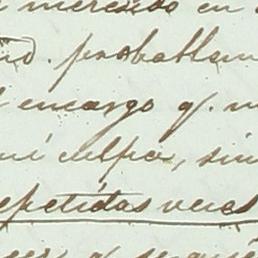 mercado en
Ud. probablem
encargo q. m
mi culpa, sin
repetidas veces